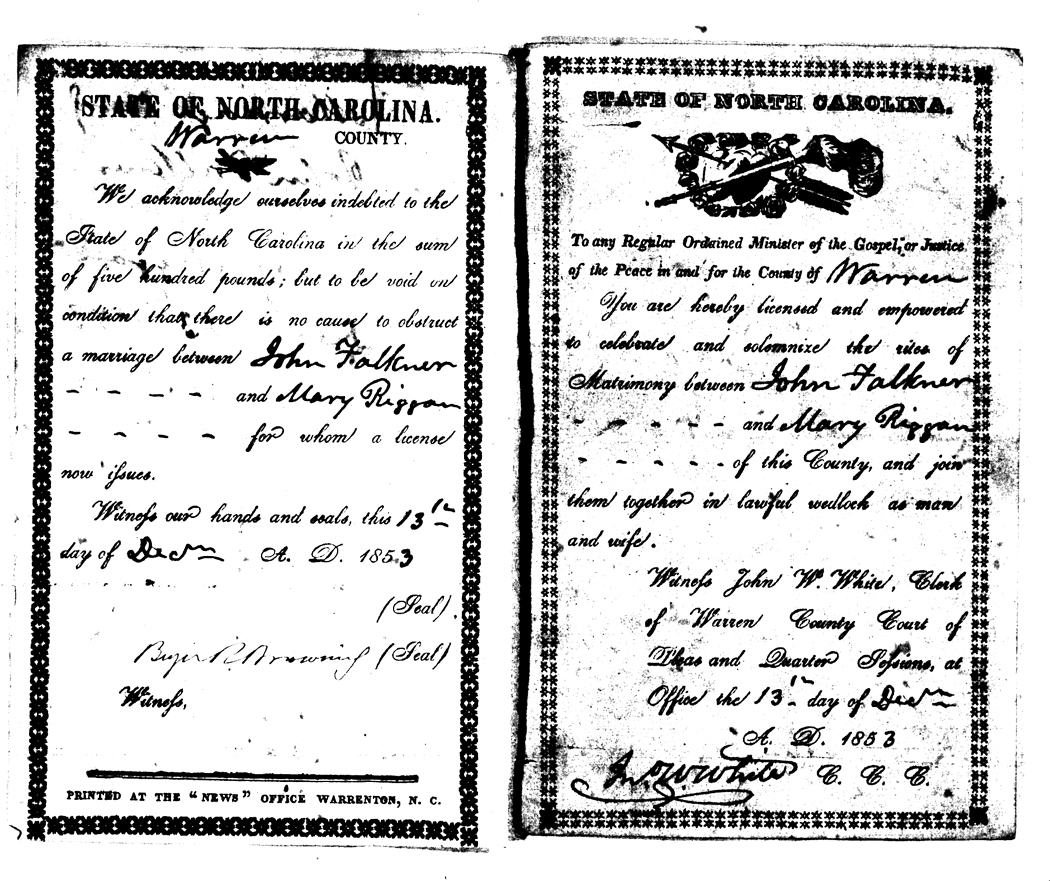 STATE OF NORTH CAROLINA.
Warren COUNTY.
We acknowledge ourselves indebted to the
State of North Carolina in the sum
of five hundred pounds; but to be void on
condition that there is no cause to obstruct
a marriage between John Falkner
- - - - and Mary Riggan
- - - - for whom a license
now issues.
Witness our hands and seals, this 13th
day of Decm A. D. 1853
(Seal).
Browning (Seal)
Witness,
PRINTED AT THE "NEWS" OFFICE WARRENTON, N. C.
STATE OF NORTH CAROLINA.
To any Regular Ordained Minister of the Gospel, or Justice
of the Peace in and for the County of Warren
You are hereby licensed and empowered
to celebrate and solemnize the rites of
Matrimony between John Falkner
- - - - - and Mary Riggan
- - - - - of this County, and join
them together in lawful wedlock as man
and wife.
Witness John W. White, Clerk
of Warren County Court of
Pleas and Quarter Sessions, at
Office the 13th day of Decm
A. D. 1853
Jno W White C. C. C.